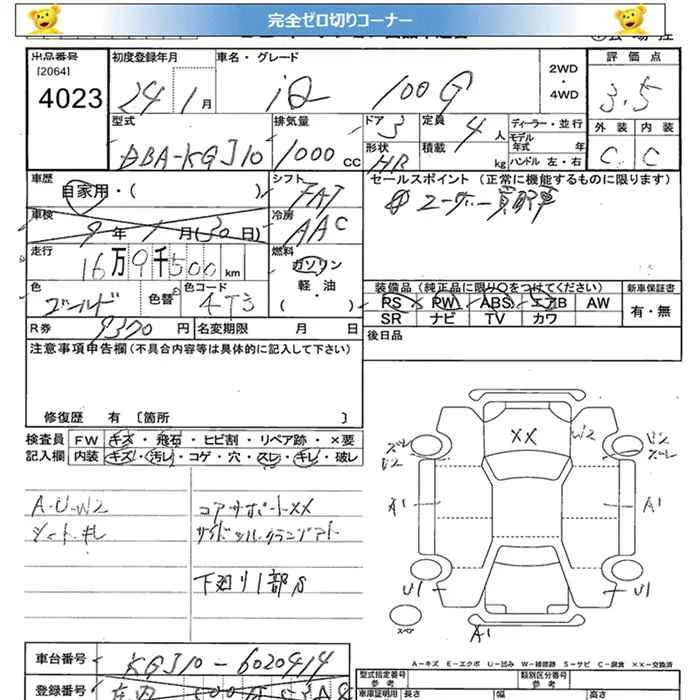 完全ゼロ切りコーナー
出品番号 初度登録年月 車名・グレード 2WD ・ 4WD 評価点
[2064]
4023 24 1月 iQ 100G 3.5
型式 排気量 ドア 3 定員 4人 ディーラー・並行 外装 内装
DBA-KGJ10 1000cc 形状 HB 積載 kg モデル年式 年 ハンドル 左・右 C C
車歴 シフト セールスポイント (正常に機能するものに限ります)
自家用・( ) FAT ユーザー買取車
車検 冷房
9年1月(30日) AAC
走行 燃料
16万9千500km ガソリン
色 色替 色コード 軽・油 装備品 (純正品に限り○をつけてください) 新車保証書
ゴールド 4T3 ( ) PS PW ABS エアB AW 有・無
SR ナビ TV カワ
R券 9370円 名変期限 月 日 後日品
注意事項申告欄 (不具合内容等は具体的に記入して下さい)
修復歴 有 [箇所 ]
検査員 FW キズ・飛石・ヒビ割・リペア跡・×要
記入欄 内装 キズ・汚レ・コゲ・穴・スレ・キレ・破レ
A-U-W2 コアサポートXX
シートキレ
下廻り1部S
XX W2
A1 A1
U1 U1
スペア A1
A-キズ E-エクボ U-凹み W-補修跡 S-サビ C-腐食 XX-交換済
車台番号 KGJ10-6020414
登録番号
型式指定番号 参考 類別区分番号 参考
車庫証明用 長さ 幅 高さ